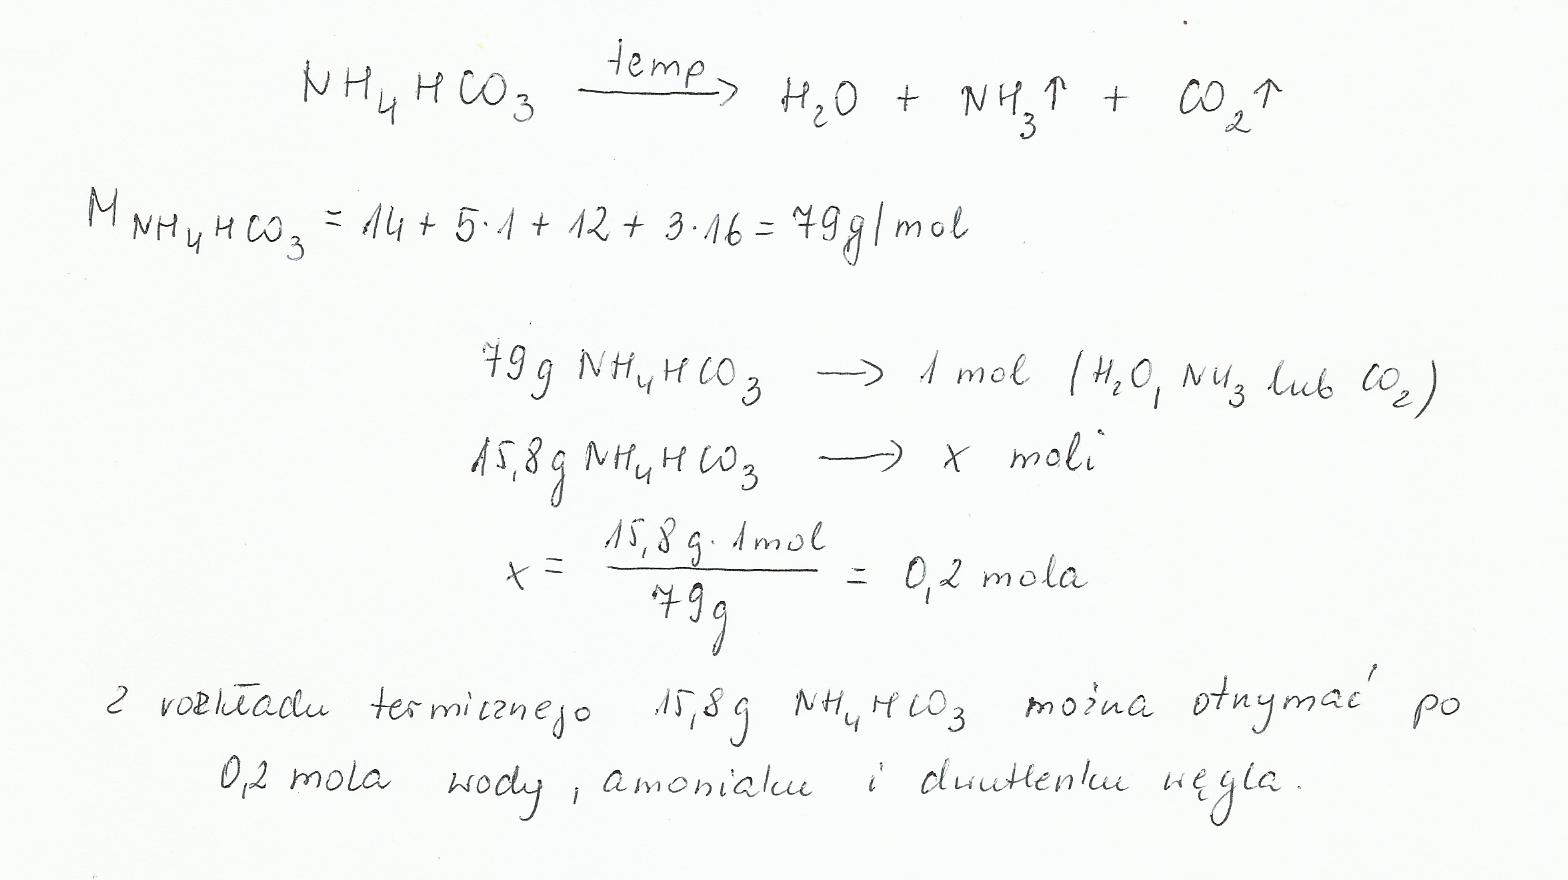 NH₄HCO₃ —temp→ H₂O + NH₃↑ + CO₂↑
M NH₄HCO₃ = 14 + 5·1 + 12 + 3·16 = 79g/mol
79g NH₄HCO₃ → 1 mol (H₂O, NH₃ lub CO₂)
15,8g NH₄HCO₃ → x moli
x = 15,8g·1mol / 79g = 0,2 mola
Z rozkładu termicznego 15,8g NH₄HCO₃ można otrzymać po
0,2 mola wody, amoniaku i dwutlenku węgla.